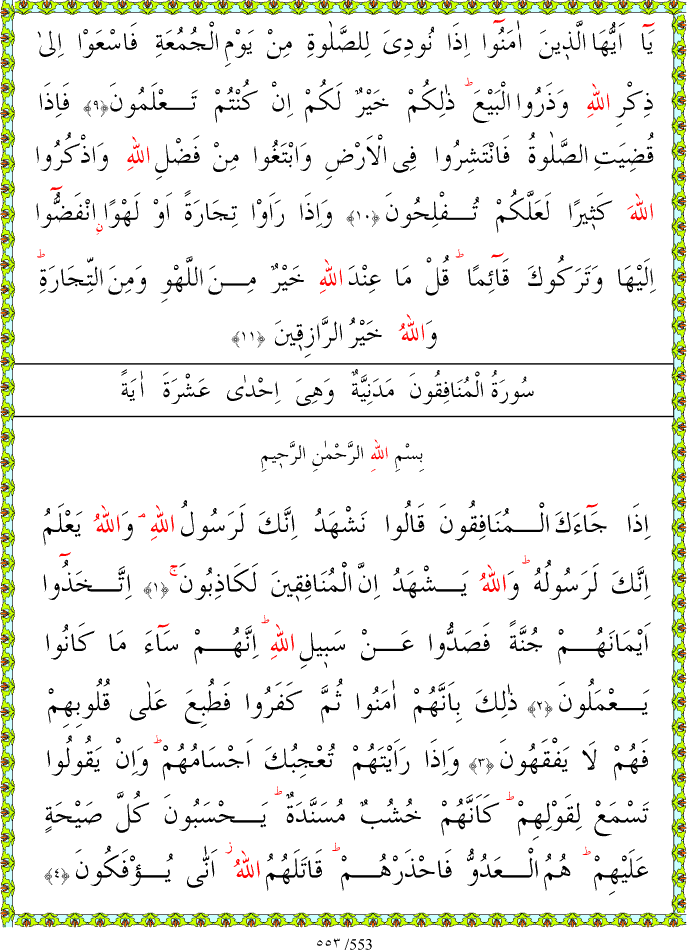 يَٓا اَيُّهَا الَّذ۪ينَ اٰمَنُٓوا اِذَا نُودِىَ لِلصَّلٰوةِ مِنْ يَوْمِ الْجُمُعَةِ فَاسْعَوْا اِلىٰ
ذِكْرِ اللّٰهِ وَذَرُوا الْبَيْعَۜ ذٰلِكُمْ خَيْرٌ لَكُمْ اِنْ كُنْتُمْ تَعْلَمُونَ ﴿٩﴾ فَاِذَا
قُضِيَتِ الصَّلٰوةُ فَانْتَشِرُوا فِى الْاَرْضِ وَابْتَغُوا مِنْ فَضْلِ اللّٰهِ وَاذْكُرُوا
اللّٰهَ كَث۪يرًا لَعَلَّكُمْ تُفْلِحُونَ ﴿١٠﴾ وَاِذَا رَاَوْا تِجَارَةً اَوْ لَهْوًاۨ انْفَضُّٓوا
اِلَيْهَا وَتَرَكُوكَ قَٓائِمًاۜ قُلْ مَا عِنْدَ اللّٰهِ خَيْرٌ مِنَ اللَّهْوِ وَمِنَ التِّجَارَةِۜ
وَاللّٰهُ خَيْرُ الرَّازِق۪ينَ ﴿١١﴾
سُورَةُ الْمُنَافِقُونَ مَدَنِيَّةٌ وَهِىَ اِحْدٰى عَشْرَةَ اٰيَةً
بِسْمِ اللّٰهِ الرَّحْمٰنِ الرَّح۪يمِ
اِذَا جَٓاءَكَ الْمُنَافِقُونَ قَالُوا نَشْهَدُ اِنَّكَ لَرَسُولُ اللّٰهِۢ وَاللّٰهُ يَعْلَمُ
اِنَّكَ لَرَسُولُهُۜ وَاللّٰهُ يَشْهَدُ اِنَّ الْمُنَافِق۪ينَ لَكَاذِبُونَۚ ﴿١﴾ اِتَّخَذُٓوا
اَيْمَانَهُمْ جُنَّةً فَصَدُّوا عَنْ سَب۪يلِ اللّٰهِۜ اِنَّهُمْ سَٓاءَ مَا كَانُوا
يَعْمَلُونَ ﴿٢﴾ ذٰلِكَ بِاَنَّهُمْ اٰمَنُوا ثُمَّ كَفَرُوا فَطُبِعَ عَلٰى قُلُوبِهِمْ
فَهُمْ لَا يَفْقَهُونَ ﴿٣﴾ وَاِذَا رَاَيْتَهُمْ تُعْجِبُكَ اَجْسَامُهُمْۜ وَاِنْ يَقُولُوا
تَسْمَعْ لِقَوْلِهِمْۜ كَاَنَّهُمْ خُشُبٌ مُسَنَّدَةٌۜ يَحْسَبُونَ كُلَّ صَيْحَةٍ
عَلَيْهِمْۜ هُمُ الْعَدُوُّ فَاحْذَرْهُمْۜ قَاتَلَهُمُ اللّٰهُۘ اَنّٰى يُؤْفَكُونَ ﴿٤﴾
٥٥٣ /553